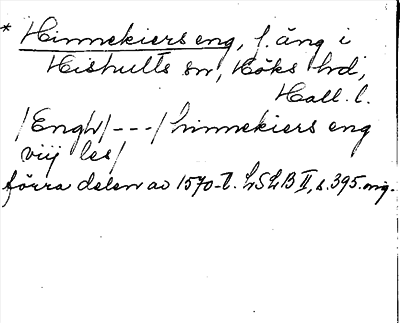 * Hinnekiers eng, f. äng i
Hishults sn, Höks hd,
Hall. l.
/Engh/---/ hinnekiers eng
viij les/
förra delen av 1570-t. LSHB II, s. 395.